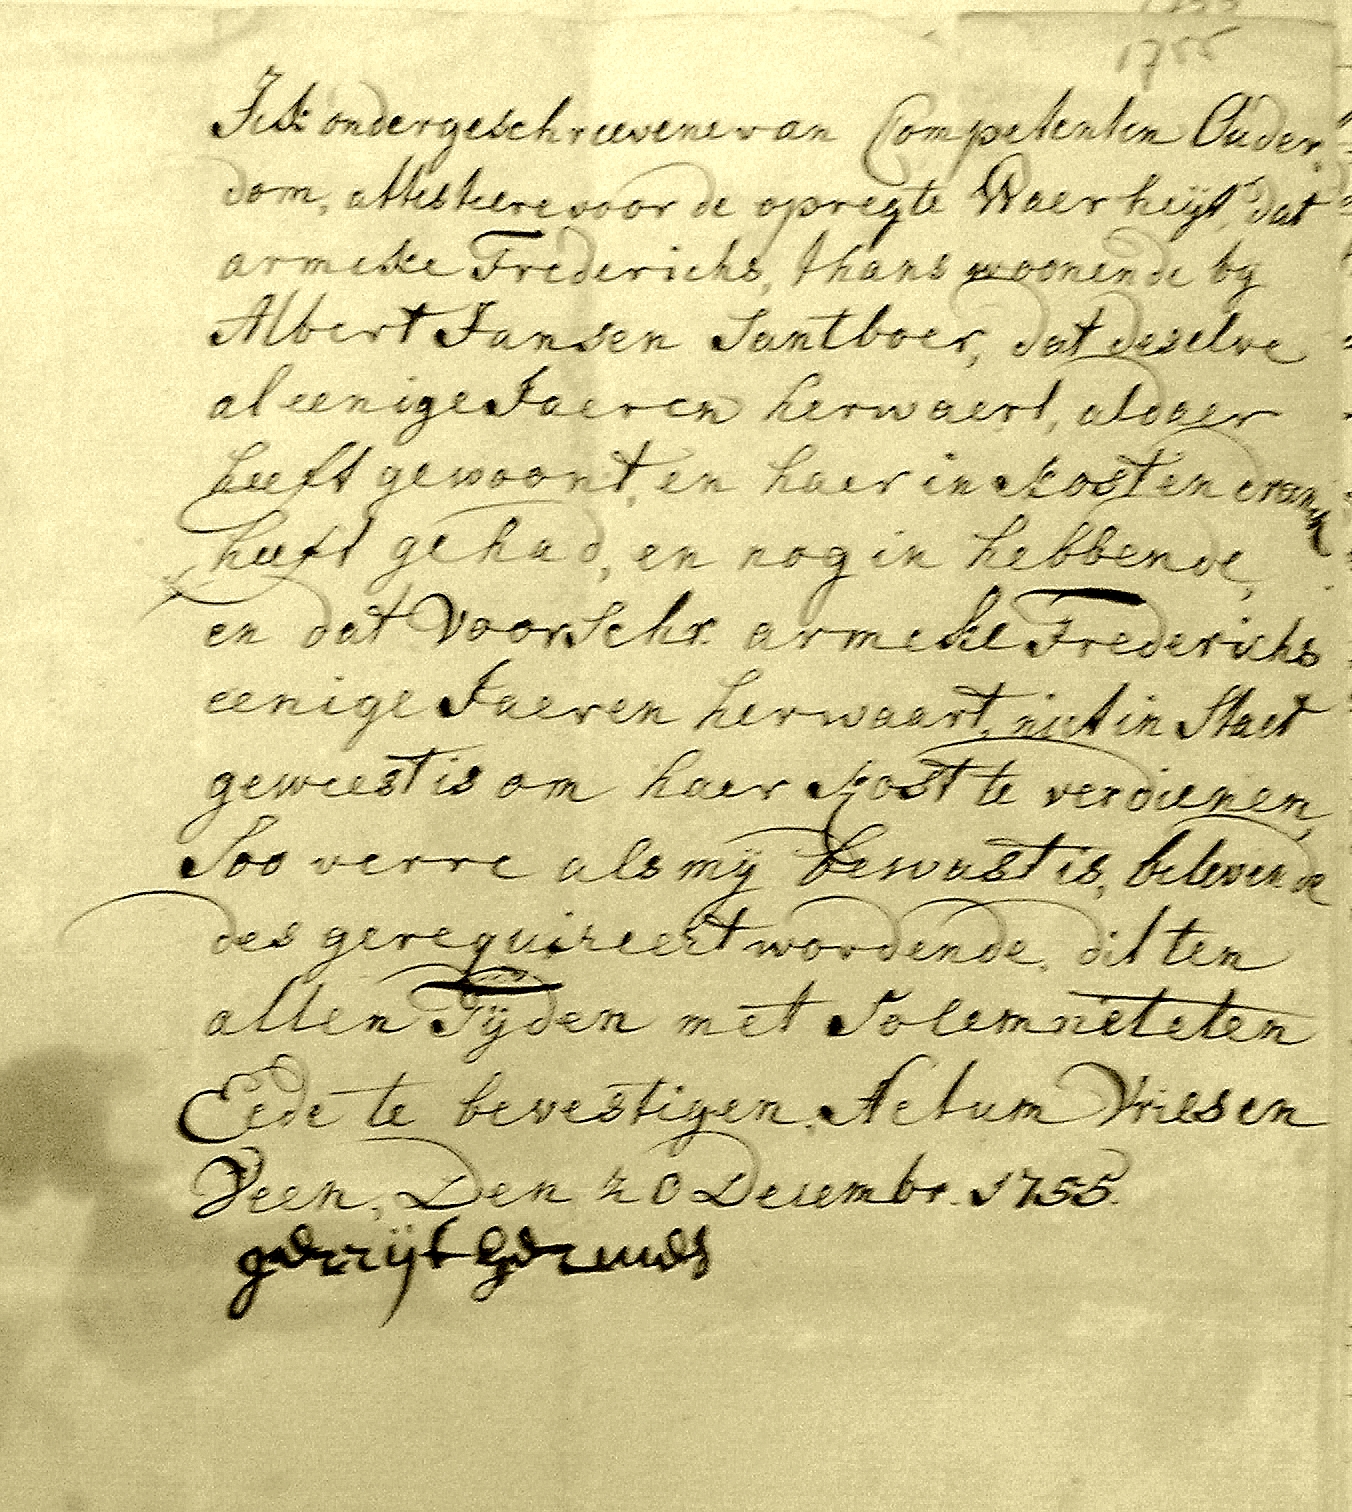 1755
Ick ondergeschreevene van Competenten Ouder
dom, attesteere voor de opregte Waerheijt, dat
armeke Frederichs, thans woonende by
Albert Jansen Santboer, dat deselve
al eenige Jaeren herwaert, aldaer
heeft gewoont, en haer in kost en dranck
heeft gehad, en nog in hebbende,
en dat Voorschr. armeke Frederichs
eenige Jaeren herwaart, niet in Staet
geweest is om haer kost te verdienen,
Soo verre als mÿ bewust is,
des gerequireert wordende, dit ten
allen Tÿden met Solemneteten
Eede te bevestigen. Actum Vriesen
Veen, Den 20 Desembr. 1755.
gerrijt